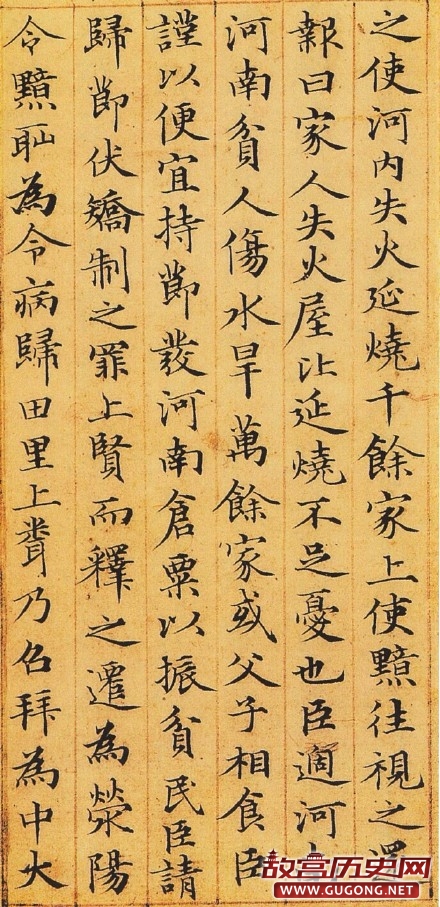 之使河内失火延燒千餘家上使黯往視之還
報曰家人失火屋比延燒不足憂也臣適河
河南貧人傷水旱萬餘家或父子相食臣
謹以便宜持節發河南倉粟以振貧民臣請
歸節伏矯制之罪上賢而釋之遷為滎陽
令黯恥為令病歸田里上聞乃召拜為中大
故宫历史网
WWW.GUGONG.NET